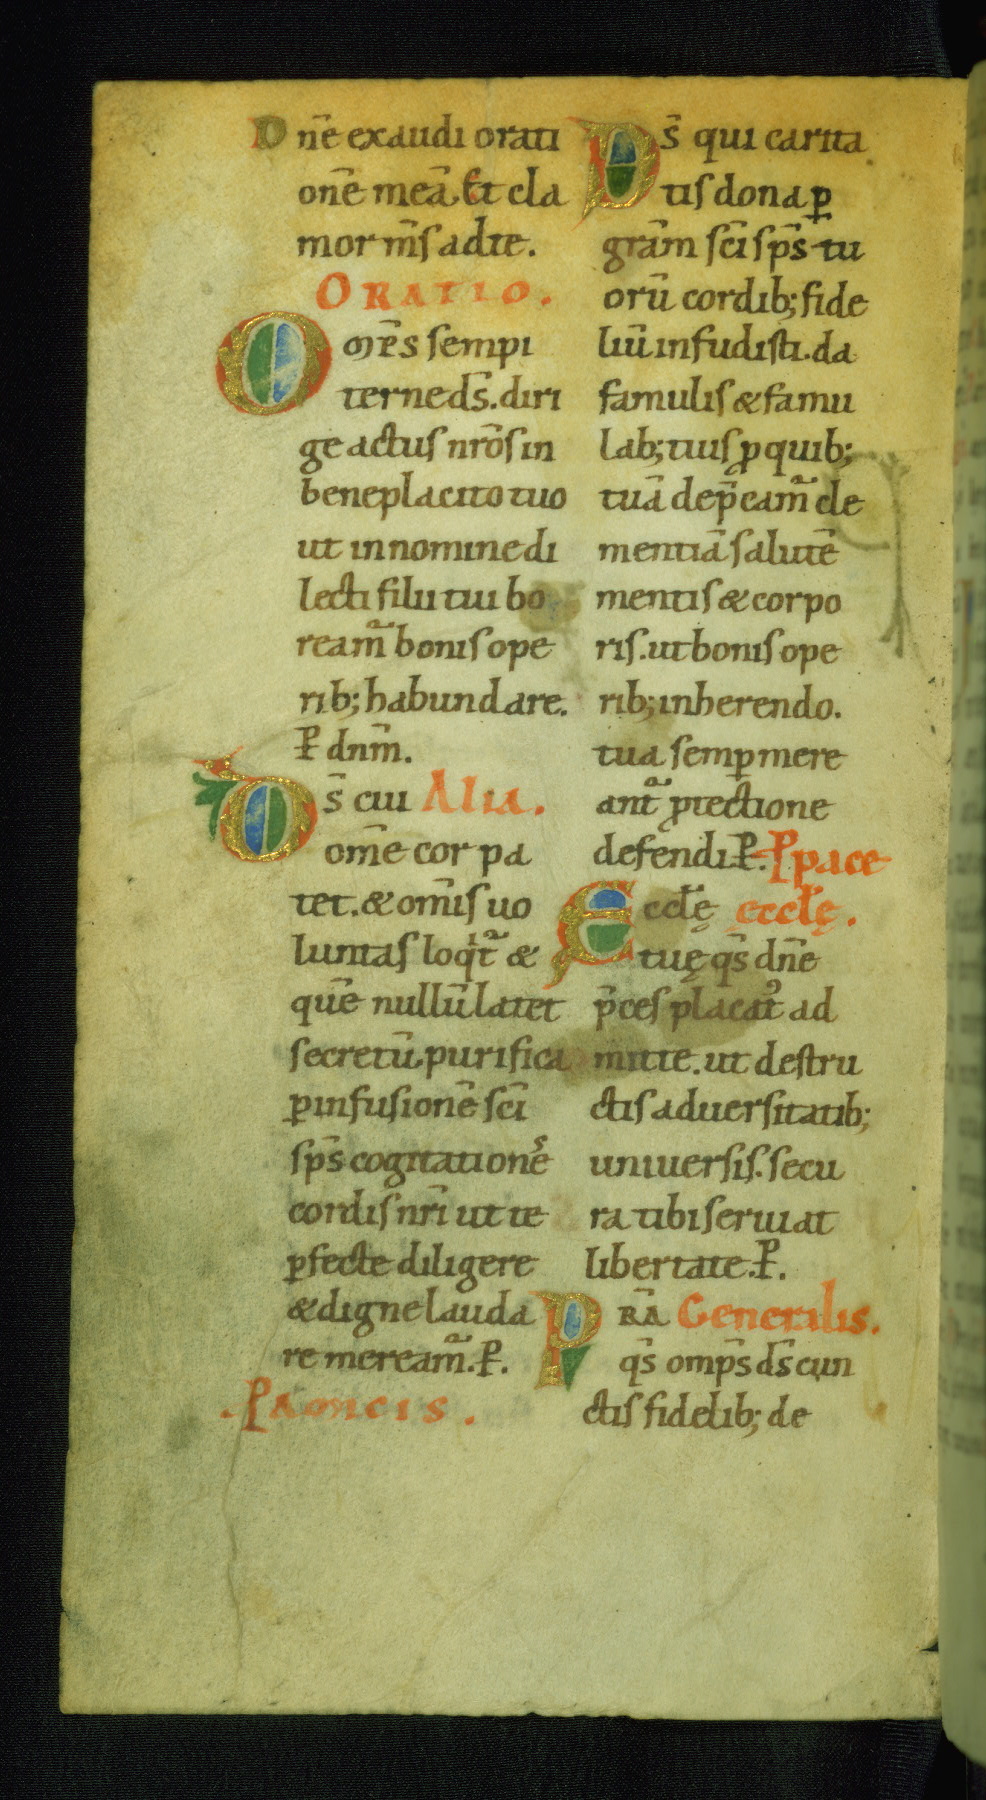 Dn̄e exaudi orati
onē meā. Et cla
mor m̄s ad te.
ORATIO.
Om̄ps sempi
terne ds̄. diri
ge actus nr̄os in
beneplacito tuo
ut in nomine di
lecti filii tui bo
ream̃ bonis ope
rib; habundare.
P̄ dnm̄.
Ds̄ cui Alia.
om̄e cor pa
tet. & om̄is uo
luntas loqt̃ &
quē nullū latet
secretū. purifica
ꝑ infusionē sc̄i
sp̄s cogitationes
cordis nr̄i ut te
ꝑfecte diligere
& digne lauda
re meream̃. P̄.
. P amicis .
Ds̄ qui carita
tis dona ꝑ
grām sc̄i sp̄s tu
orū cordib; fide
liū infudisti. da
famulis & famu
lab; tuis ꝓ quib;
tuā dep̄cam̃ cle
mentiā salutē
mentis & corpo
ris. ut bonis ope
rib; inherendo.
tua semꝑ mere
ant̃ ꝓtectione
defendi. P̄. P pace
Eccl̄ę eccl̄ę.
tuę qs̄ dn̄e
p̄ces placat᷒ ad
mitte. ut destru
ctis aduersitatib;
uniuersis. secu
ra tibi seruiat
libertate. P̄.
PRĀ Generalis.
qs̄ omp̄s ds̄ cun
ctis fidelib; de